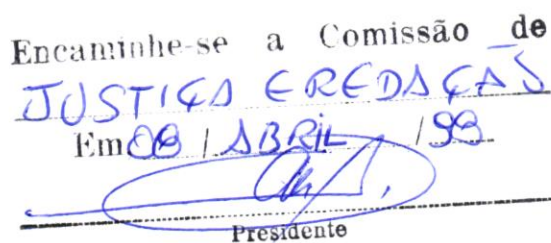 Encaminhe-se a Comissão de
JUSTIÇA E REDAÇÃO
Em 08 / ABRIL / 99
Presidente